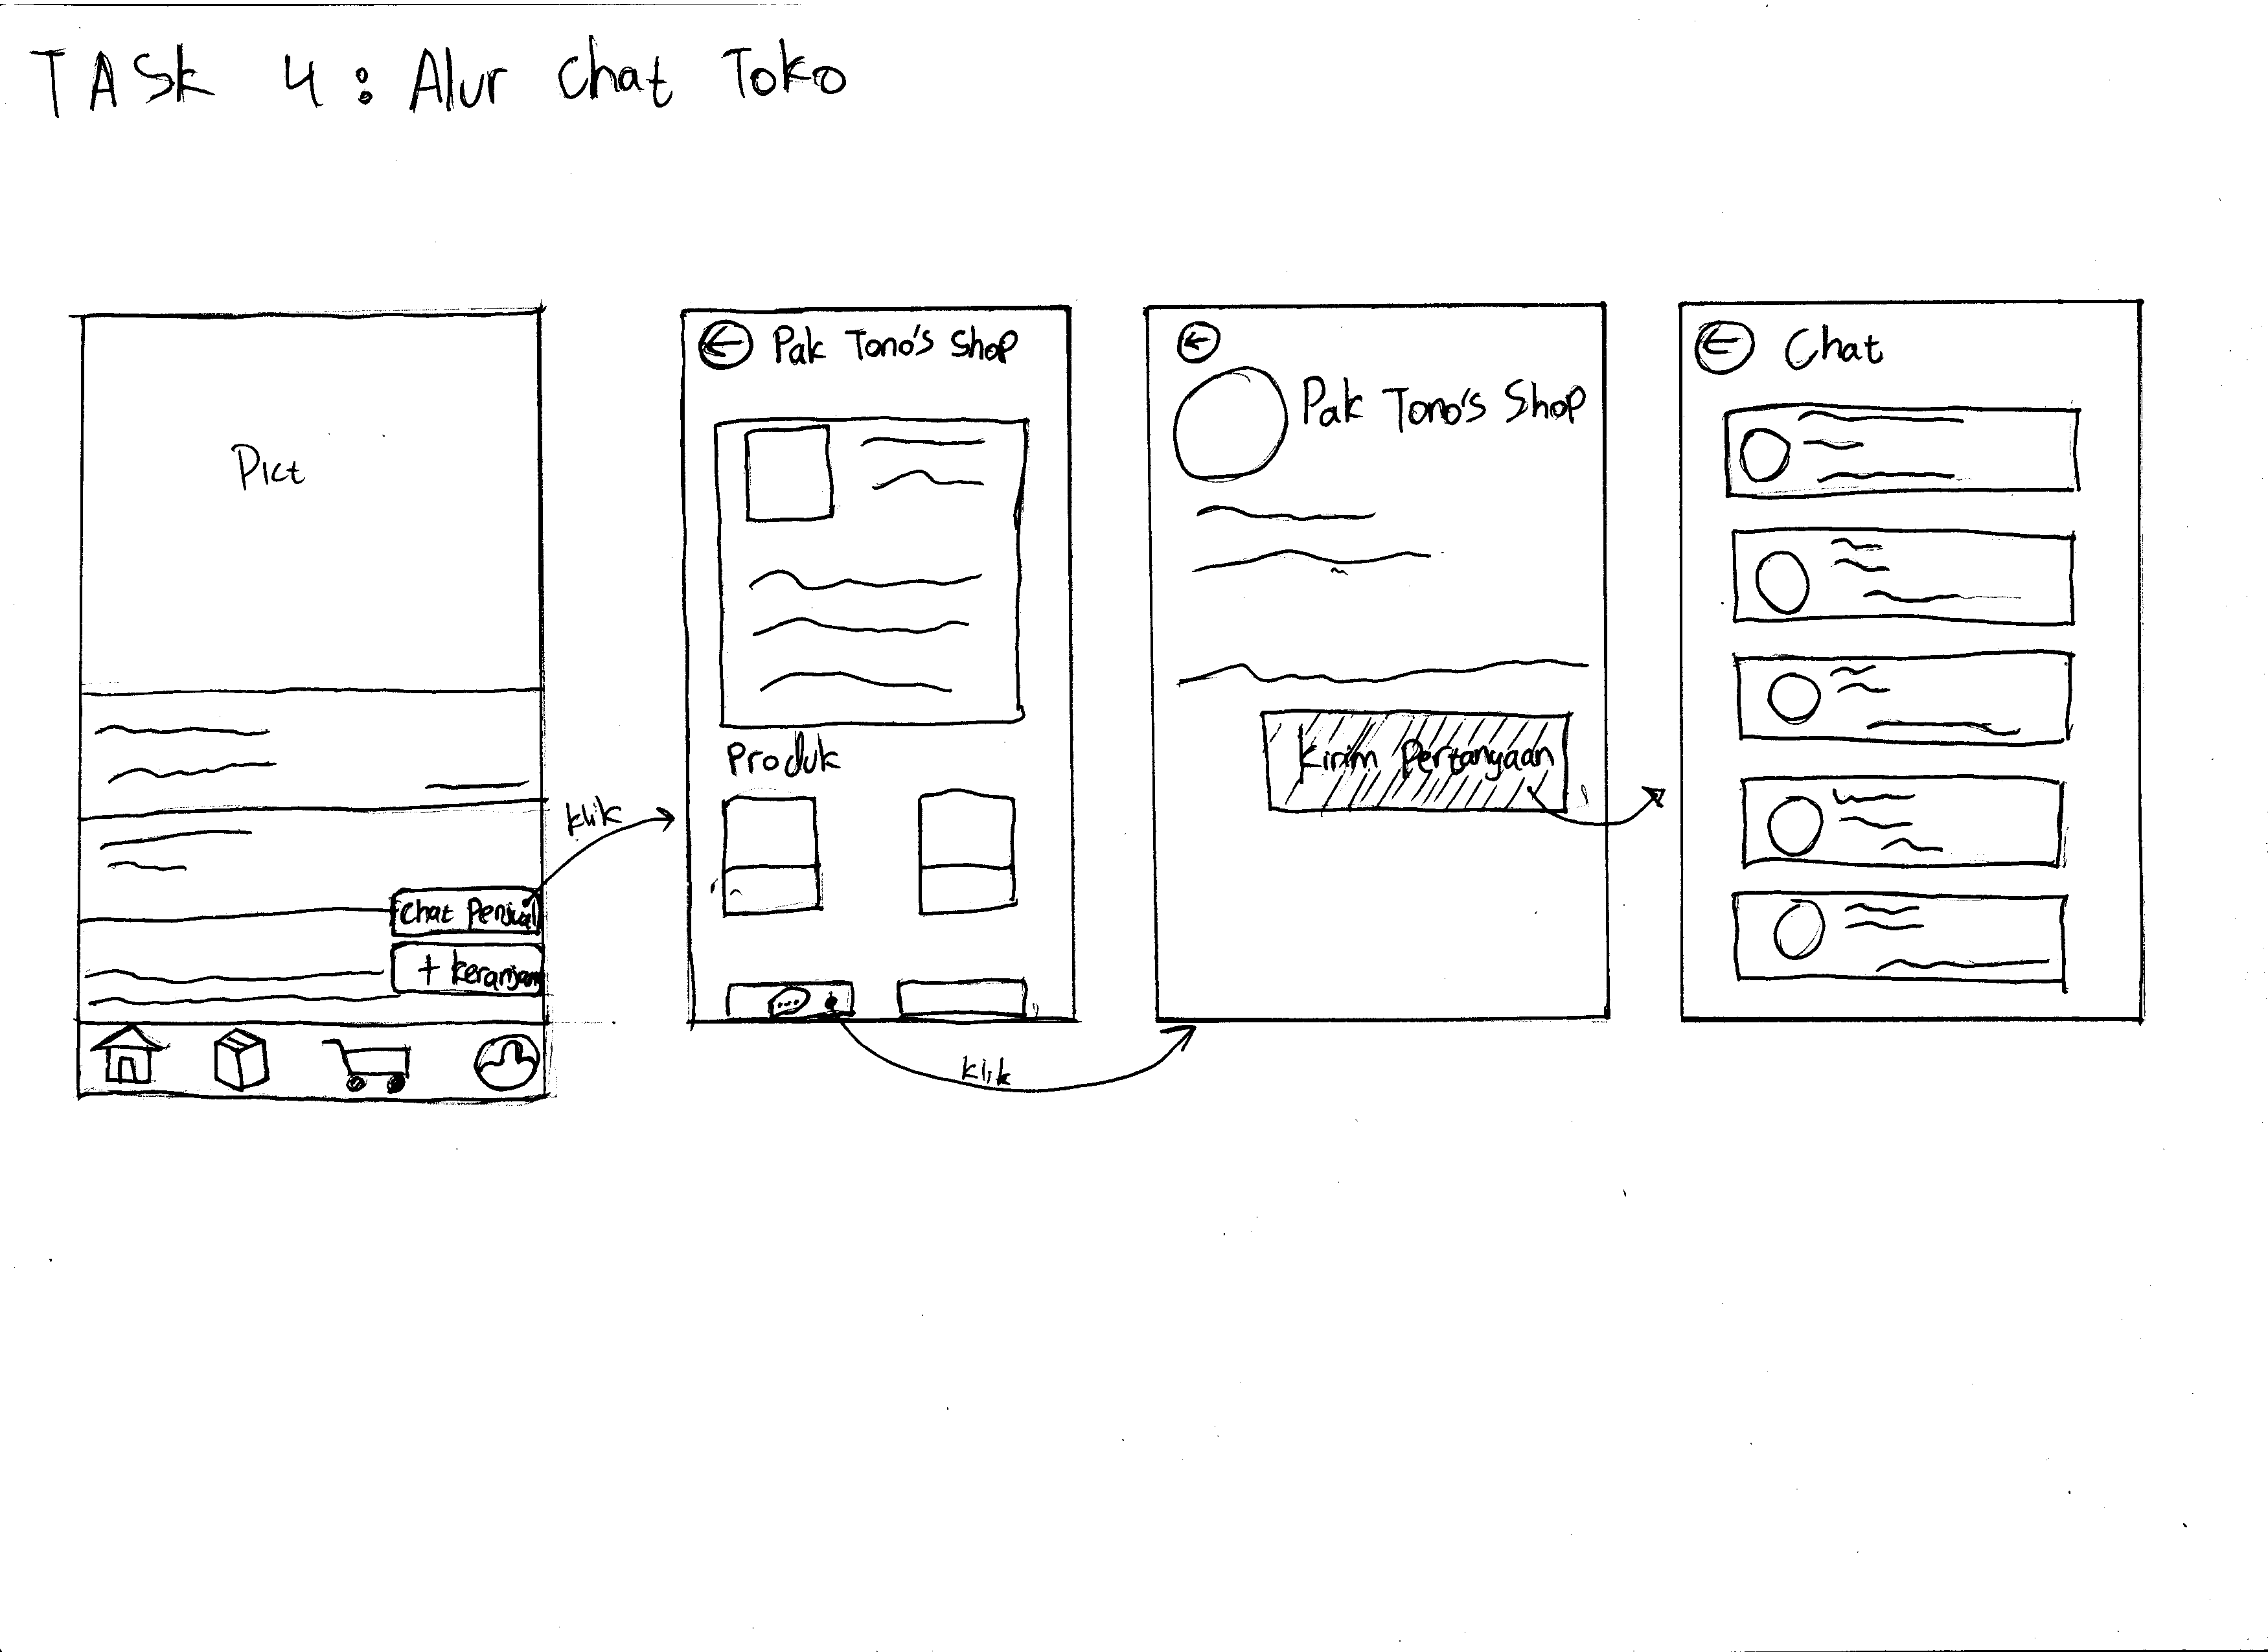 TASK 4 : Alur Chat Toko
Pict
Chat Penjual
+ keranjang
klik
Pak Tono's Shop
Produk
klik
Pak Tono's Shop
Kirim Pertanyaan
Chat